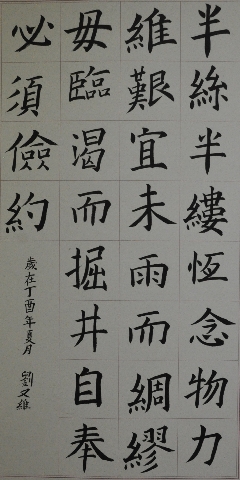 半絲半縷恆念物力
維艱宜未雨而綢繆
毋臨渴而掘井自奉
必須儉約
歲在丁酉年夏月
劉又維